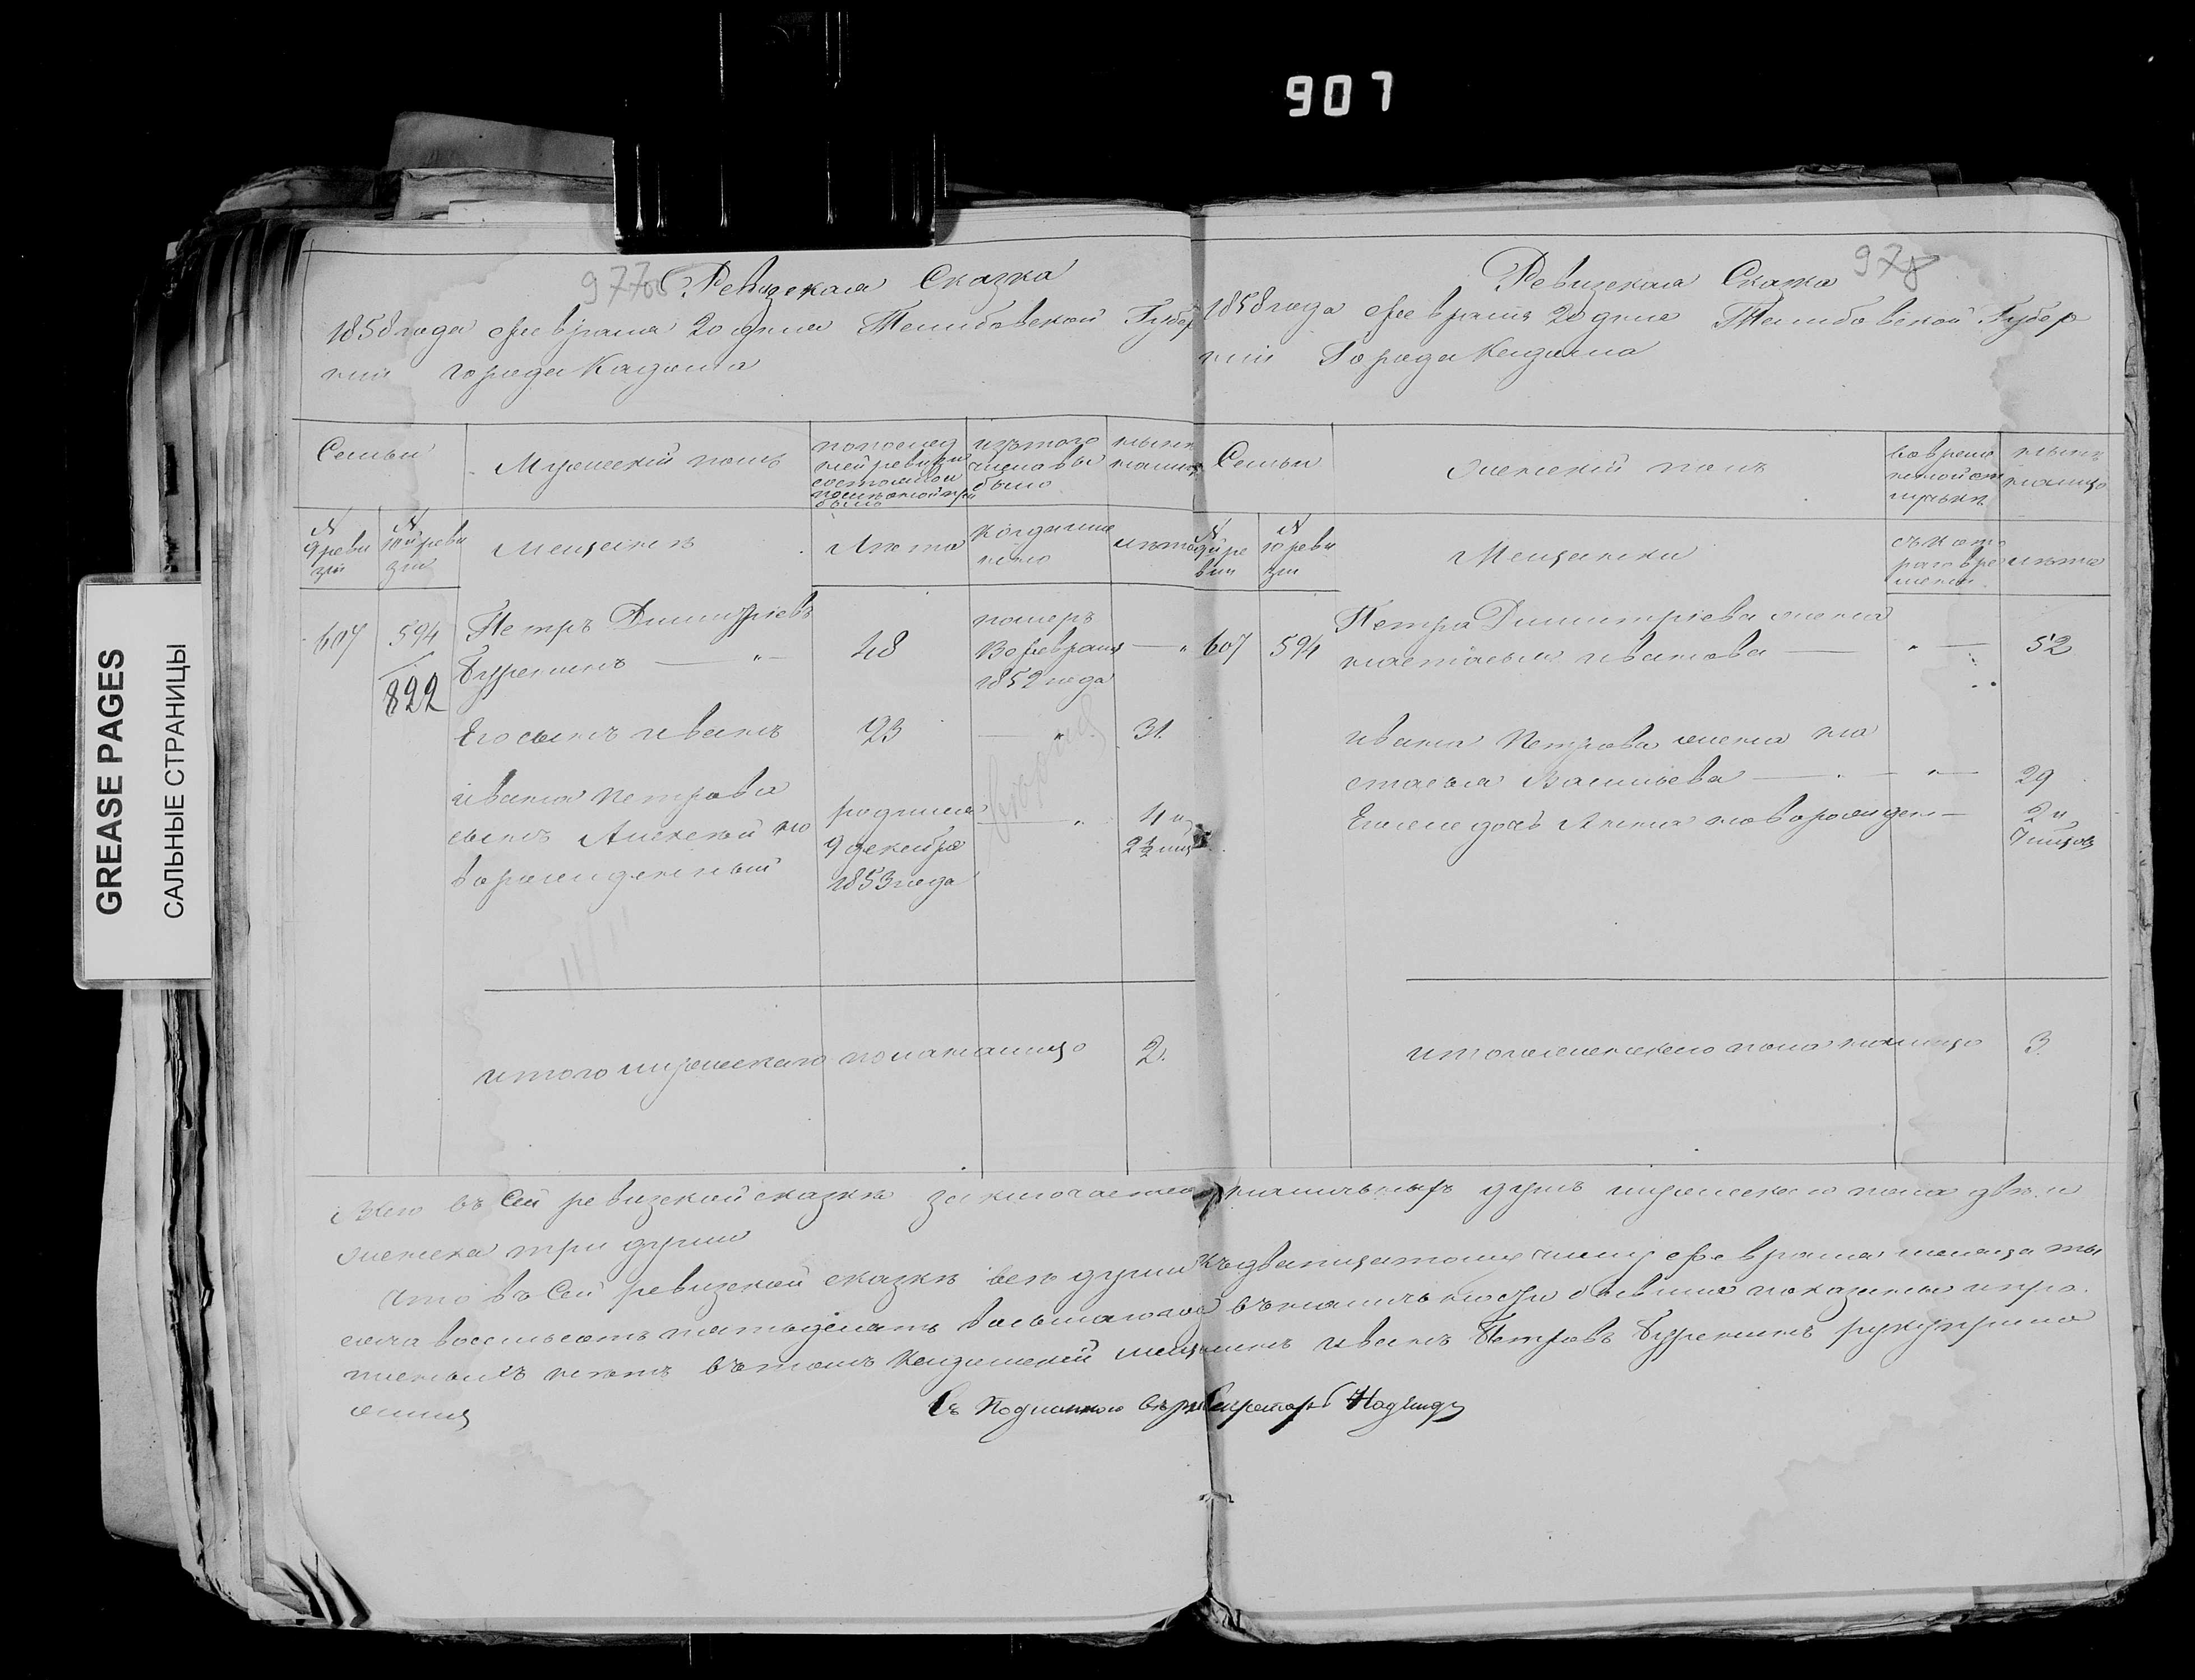 907
GREASE PAGES
САЛЬНЫЕ СТРАНИЦЫ
977об
Ревизская Сказка
1858 года февраля 20 дня Тамбовской Губер
нии города Кадома
Семьи
Мужеской полъ
по послед
ней ревизии
состояло и
после оной при
было
изъ того
числа вы
было
ныне
на лицо
№
9 реви
зіи
№
10й реви
зіи
Мещане
Лета
Когда име
нно
лета
607
594
822
Петръ Димитріевъ
Буренинъ — „ —
48
померъ
В февраля
1852 года
— „
Его сынъ иванъ
23
— „
31.
ивана Петрова
сынъ Алексей но
ворожденный
родился
9 декабря
1853 года
— „
4 и
2½ мца
итого мужескаго пола на лицо
2.
978
Ревизская Сказка
1858 года февраля 20 дня Тамбовской Губер
нии Города Кадома
Семьи
женской полъ
во времян
ной от
лучке
ныне
на лицо
№
9й ре
визіи
№
10 реви
зіи
Мещанки
съ кото
раго вре
мени
лета
607
594
Петра Димитріева жена
настасья иванова —
„ —
52
ивана Петрова жена на
стасья Васильева — „ —
„ —
29
Его же дочь Анна новорожден —
2 и
7 мцов
итого женскаго пола на лицо
3.
Всего въ Сей ревизской сказке заключается наличныхъ душъ мужеска пола две и
женска три души
Что въ Сей ревизской сказке все души къ двадцатому числу февраля месяца ты
сяча восемьсотъ пятьдесятъ восьмаго года въ наличности бывшия показаны и про
писныхъ нетъ въ томъ Кадомской мещанинъ иванъ Петровъ Буренинъ руку прило
жилъ
Съ Подлиннымъ верно Секретарь